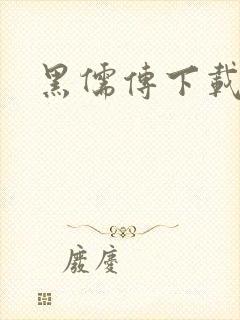 黑儒傳下載
廢慶